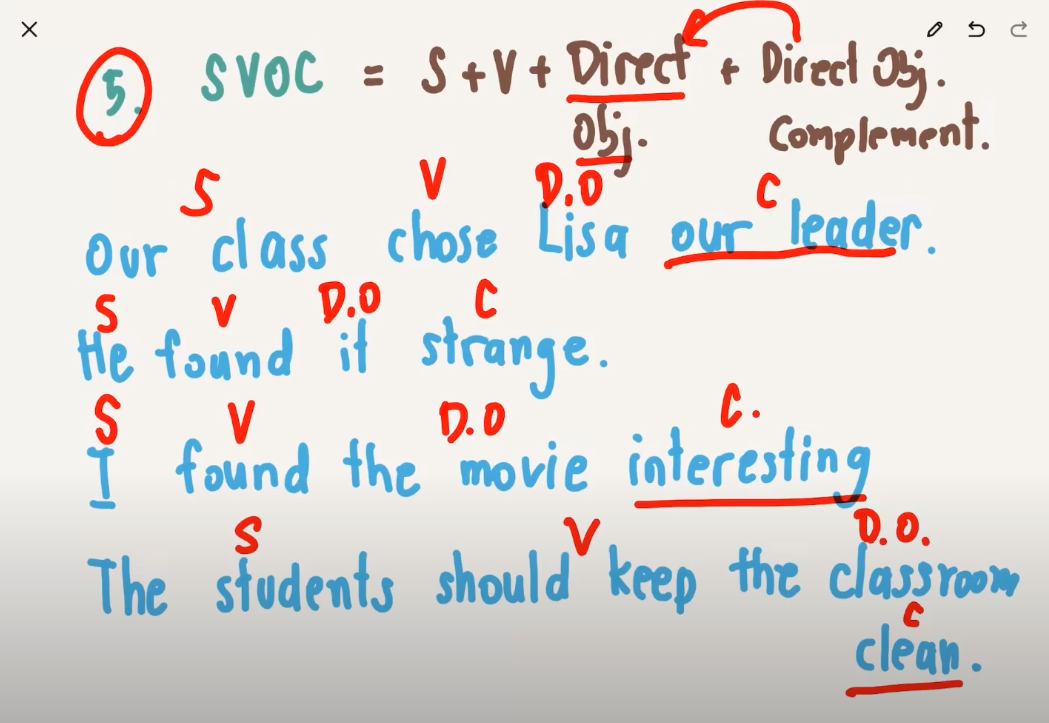 5. SVOC = S + V + Direct + Direct Obj.
Obj. Complement.
S V D.O C
Our class chose Lisa our leader.
S V D.O C
He found it strange.
S V D.O C.
I found the movie interesting
S V D.O.
The students should keep the classroom
C
clean.